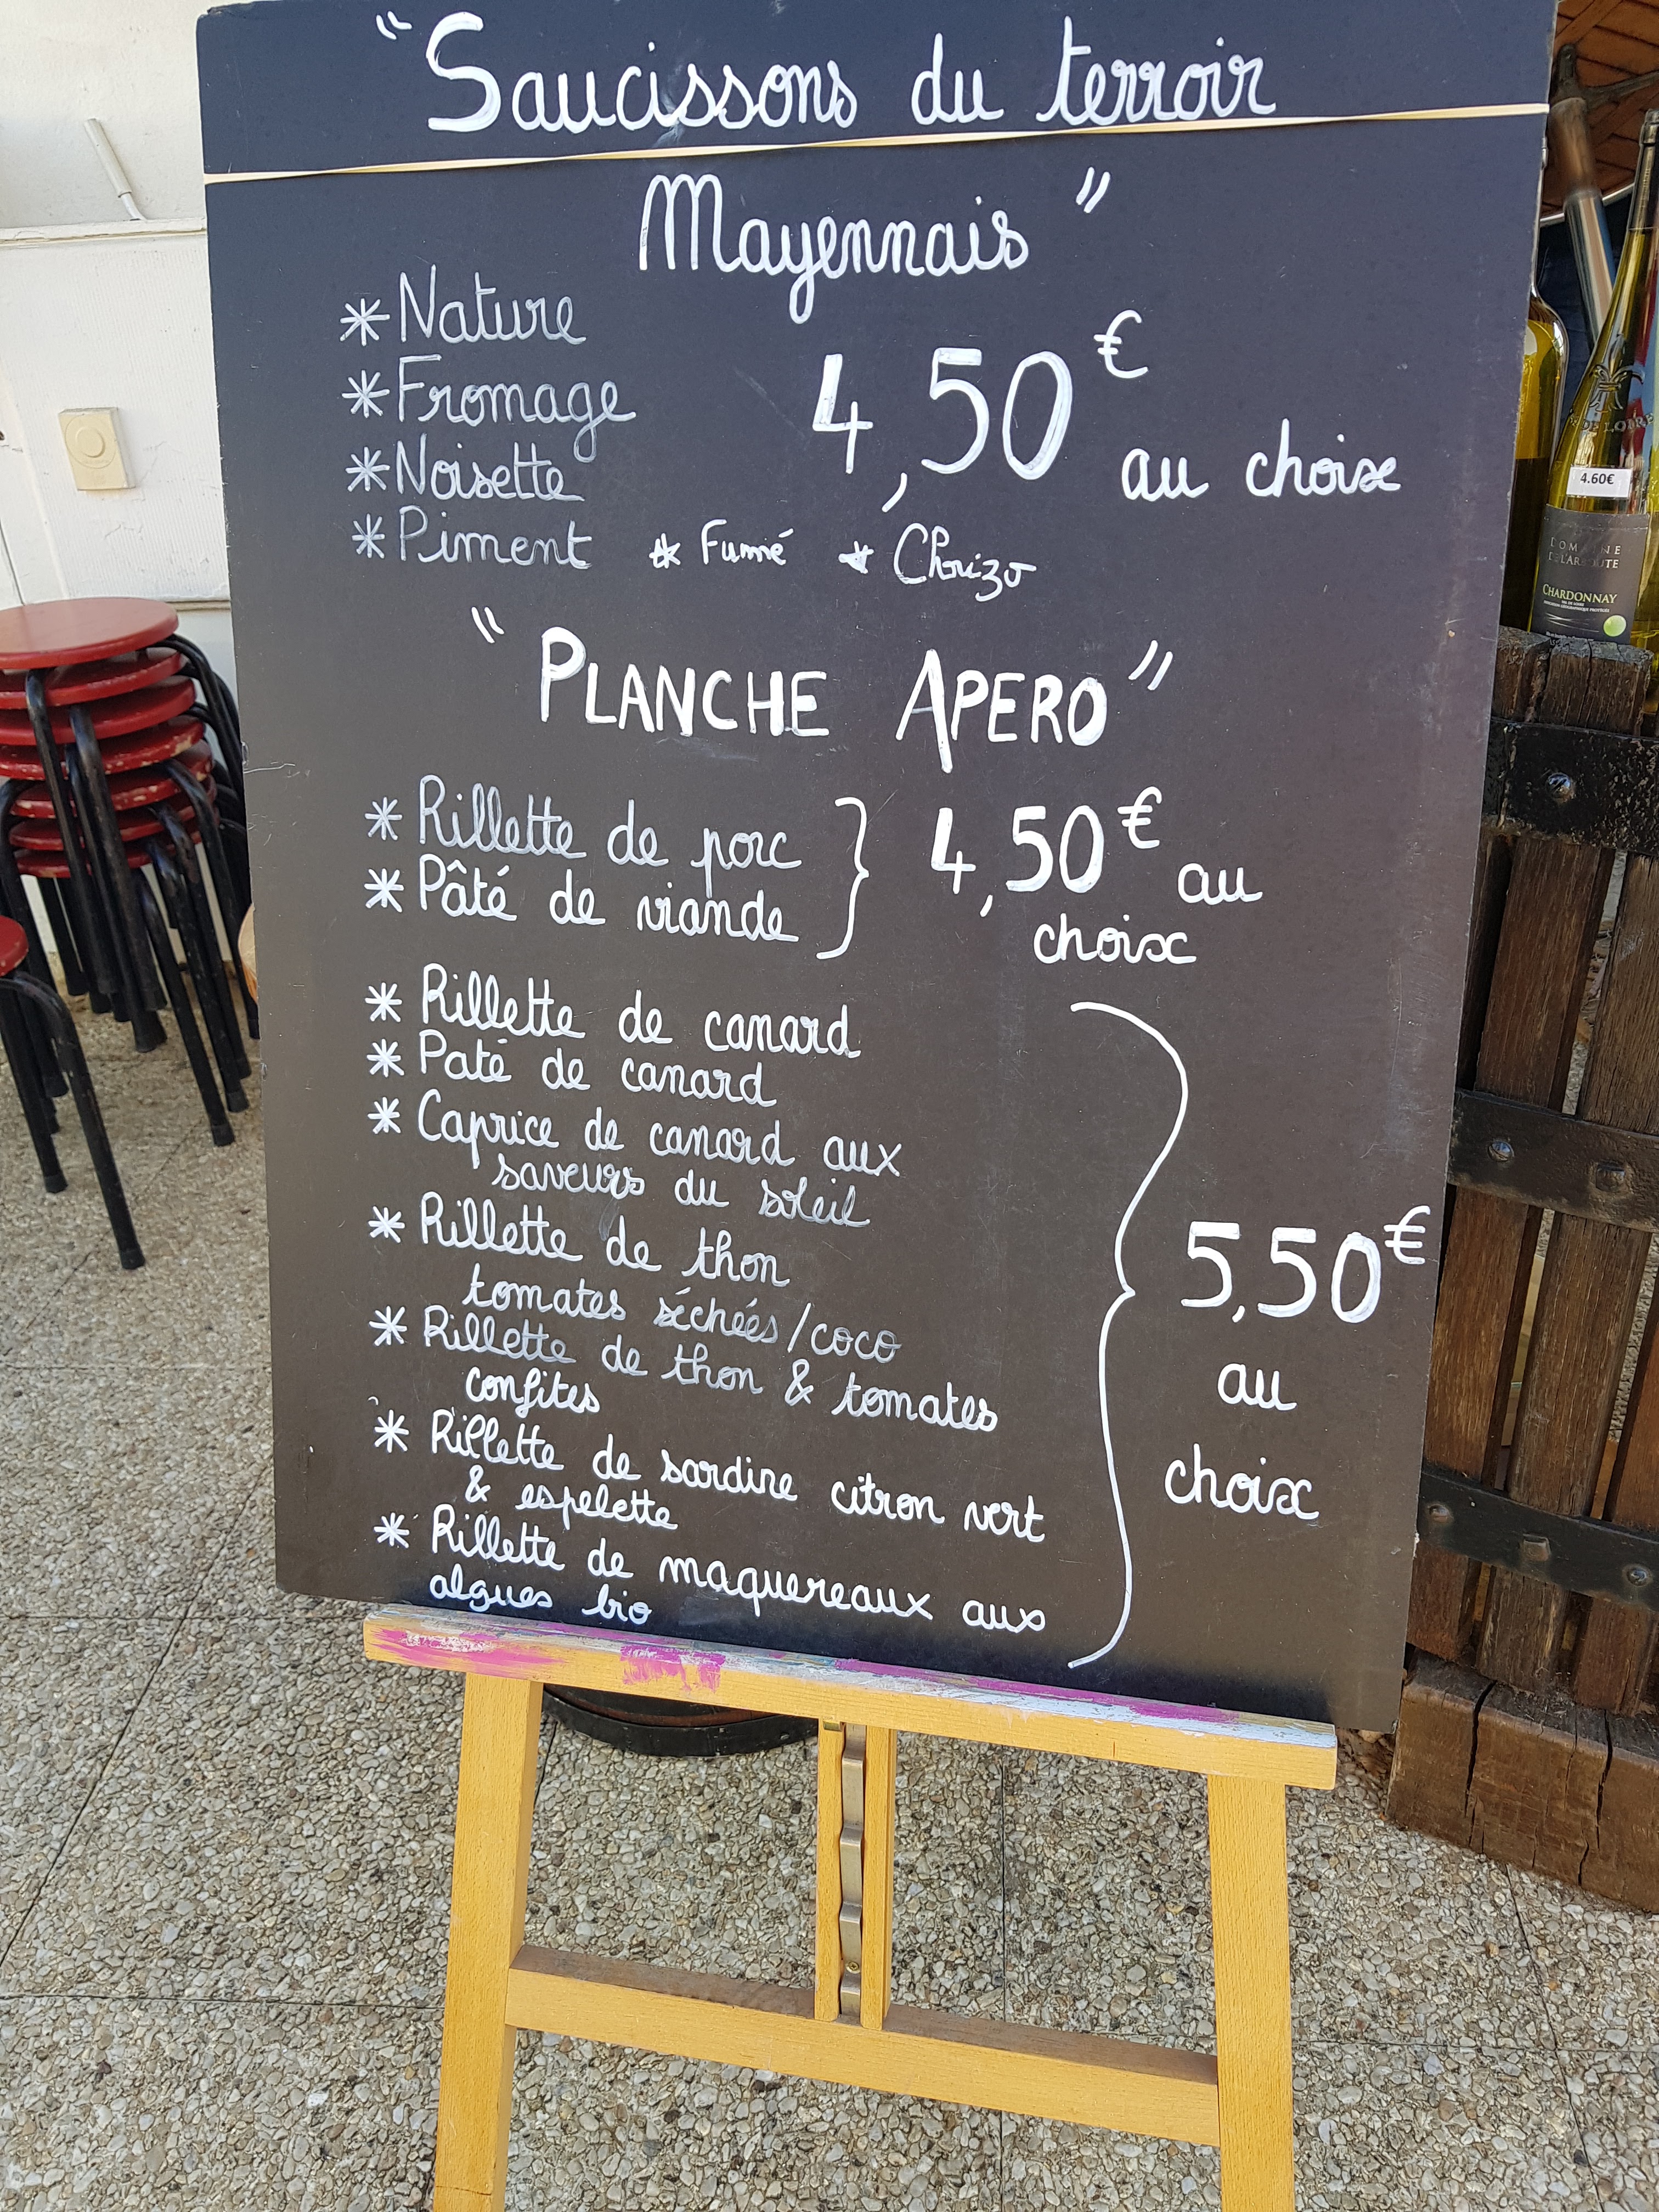 "Saucissons du terroir
Mayennais"
* Nature
* Fromage
* Noisette
4,50€ au choix
* Piment * Fumé * Chorizo
"PLANCHE APERO"
* Rillette de porc
* Pâté de viande
4,50€ au
choix
* Rillette de canard
* Paté de canard
* Caprice de canard aux
saveurs du soleil
* Rillette de thon
tomates séchées/coco
* Rillette de thon & tomates
confites
* Rillette de sardine citron vert
& espelette
* Rillette de maquereaux aux
algues bio
5,50€
au
choix
4.60€
CHARDONNAY